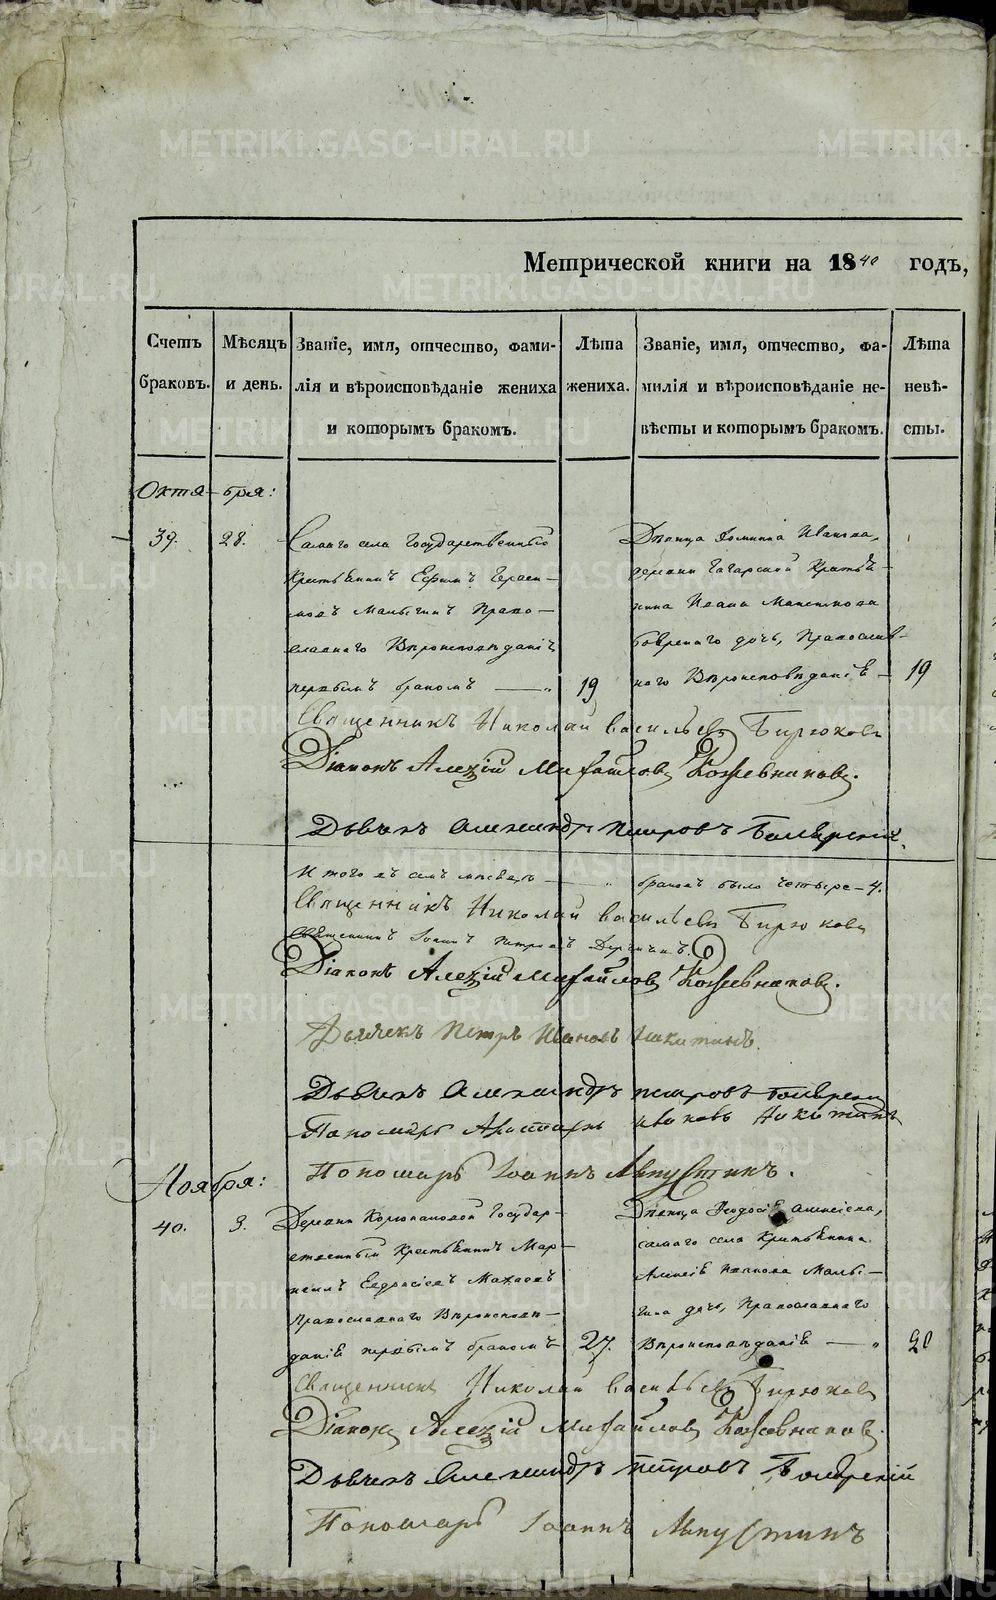 METRIKI.GASO-URAL.RU
Метрической книги на 1840 годъ,
Счетъ браковъ.
Мѣсяцъ и день.
Званіе, имя, отчество, фами-
лія и вѣроисповѣданіе жениха
и которымъ бракомъ.
Лѣта жениха.
Званіе, имя, отчество, фа-
милія и вѣроисповѣданіе не-
вѣсты и которымъ бракомъ.
Лѣта невѣ-
сты.
Октя-бря:
39.
28.
Самаго села Государственный
Крестьянинъ Ефимъ Гераси-
мовъ Право-
славнаго Вѣроисповѣданія
первымъ бракомъ
19
Дѣвица Ивановa,
деревни Крестья-
нина Ивана
дочь, Православ-
наго Вѣроисповѣданія
19
Священникъ Николай Васильевъ Бирюковъ
Діаконъ Алексій Михайловъ Кожевниковъ.
Дьячекъ Александръ Петровъ
Итого въ семъ мѣсяцѣ браковъ было четыре - 4.
Священникъ Николай Васильевъ Бирюковъ
Священникъ Іоаннъ Петровъ
Діаконъ Алексій Михайловъ Кожевниковъ.
Дьячекъ Петръ Ивановъ Никитинъ.
Дьячекъ Александръ Петровъ
Пономарь Ивановъ Никитинъ
Пономарь Іоаннъ
Ноября:
40.
3.
Деревни Государ-
ственный Крестьянинъ Мар-
Православнаго Вѣроисповѣ-
данія первымъ бракомъ
27.
Дѣвица Ѳеодосія Алексіева,
самаго села Крестьянина
Алексія Иванова Малы-
гина дочь, Православнаго
Вѣроисповѣданія
20
Священникъ Николай Васильевъ Бирюковъ
Діаконъ Алексій Михайловъ Кожевниковъ.
Дьячекъ Александръ Петровъ
Пономарь Іоаннъ